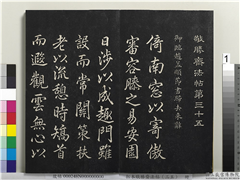 敬勝齋法帖第三十五
御臨趙孟頫書歸去來辭
倚南窗以寄傲
審容膝之易安園
日涉以成趣門雖
設而常關策扶
老以流憩時矯首
而遐觀雲無心以